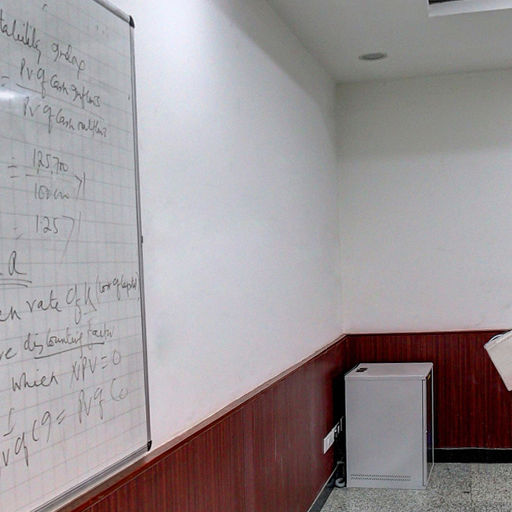 tability index
= PV of Cash inflows
PV of Cash outflows
= 125,700
100000 > 1
= 1.25 > 1
R
en rate of K (cost of capital)
re discounted factor
which NPV = 0
PV of CI = PV of Co